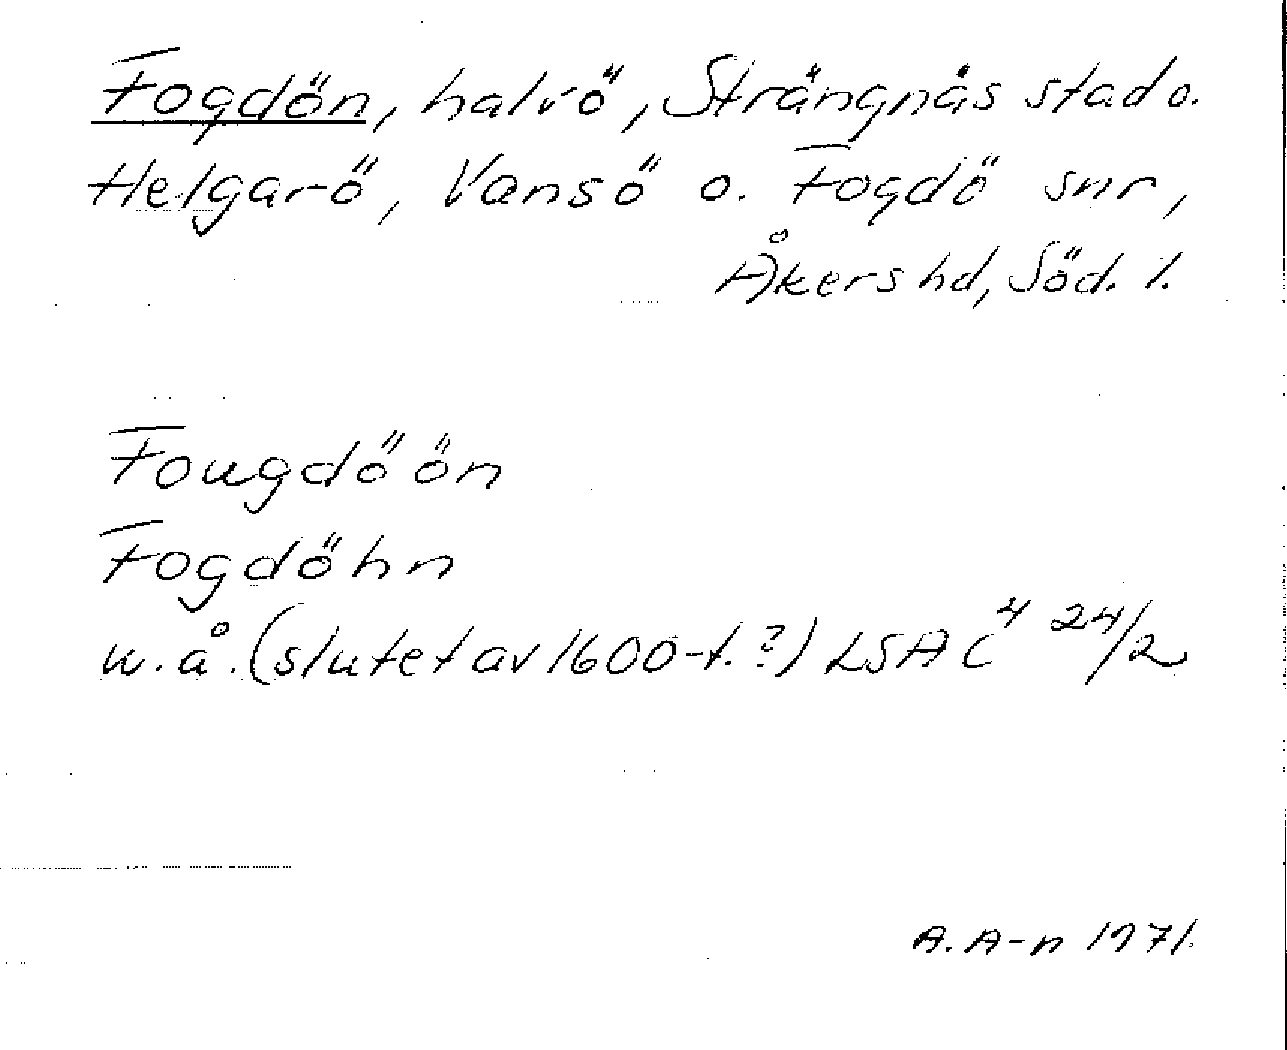 Fogdön, halvö, Strängnäs stad o.
Helgarö, Vansö o. Fogdö snr,
Åkers hd, Söd. l.
Fougdö ön
Fogdöhn
u. å. (slutet av 1600-t. ?) LSA C⁴ 24/2
A. A-n 1971.